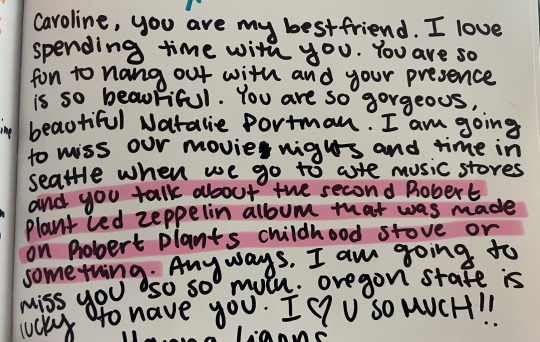 Caroline, you are my bestfriend. I love
spending time with you. You are so
fun to hang out with and your presence
is so beautiful. You are so gorgeous,
beautiful Natalie Portman. I am going
to miss our movie nights and time in
seattle when we go to cute music stores
and you talk about the second Robert
Plant Led zeppelin album that was made
on Robert Plants childhood stove or
something. Anyways, I am going to
miss you so so much. oregon state is
lucky to have you. I ♡ U SO MUCH!!